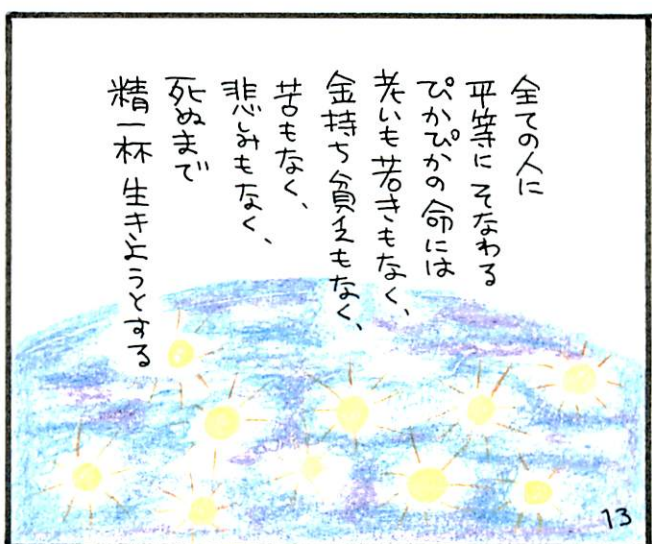 全ての人に
平等にそなわる
ぴかぴかの命には
老いも若きもなく、
金持ち貧乏もなく、
苦もなく、
悲しみもなく、
死ぬまで
精一杯 生きようとする
13